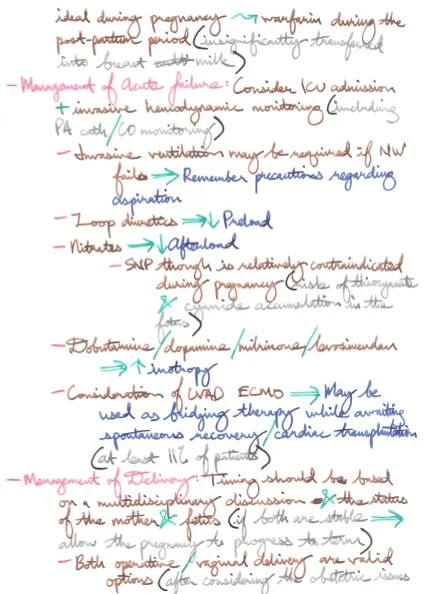 ideal during pregnancy ⇝ warfarin during the
post-partum period (insignificantly transferred
into breast milk)
- Management of Acute failure: Consider ICU admission
+ invasive hemodynamic monitoring (including
PA cath/CO monitoring)
- Invasive ventilation may be required if NIV
fails → Remember precautions regarding
aspiration
- Loop diuretics → ↓ Preload
- Nitrates → ↓ Afterload
- SNP though is relatively contraindicated
during pregnancy (risk of thiocyanate
& cyanide accumulation in the
fetus)
- Dobutamine/dopamine/milrinone/levosimendan
→ ↑ inotropy
- Consideration of LVAD ECMO → May be
used as bridging therapy while awaiting
spontaneous recovery/cardiac transplantation
(at least 11% of patients)
- Management of Delivery: Timing should be based
on a multidisciplinary discussion & the status
of the mother & fetus (if both are stable →
allow the pregnancy to progress to term)
- Both operative/vaginal delivery are valid
options (after considering the obstetric issues